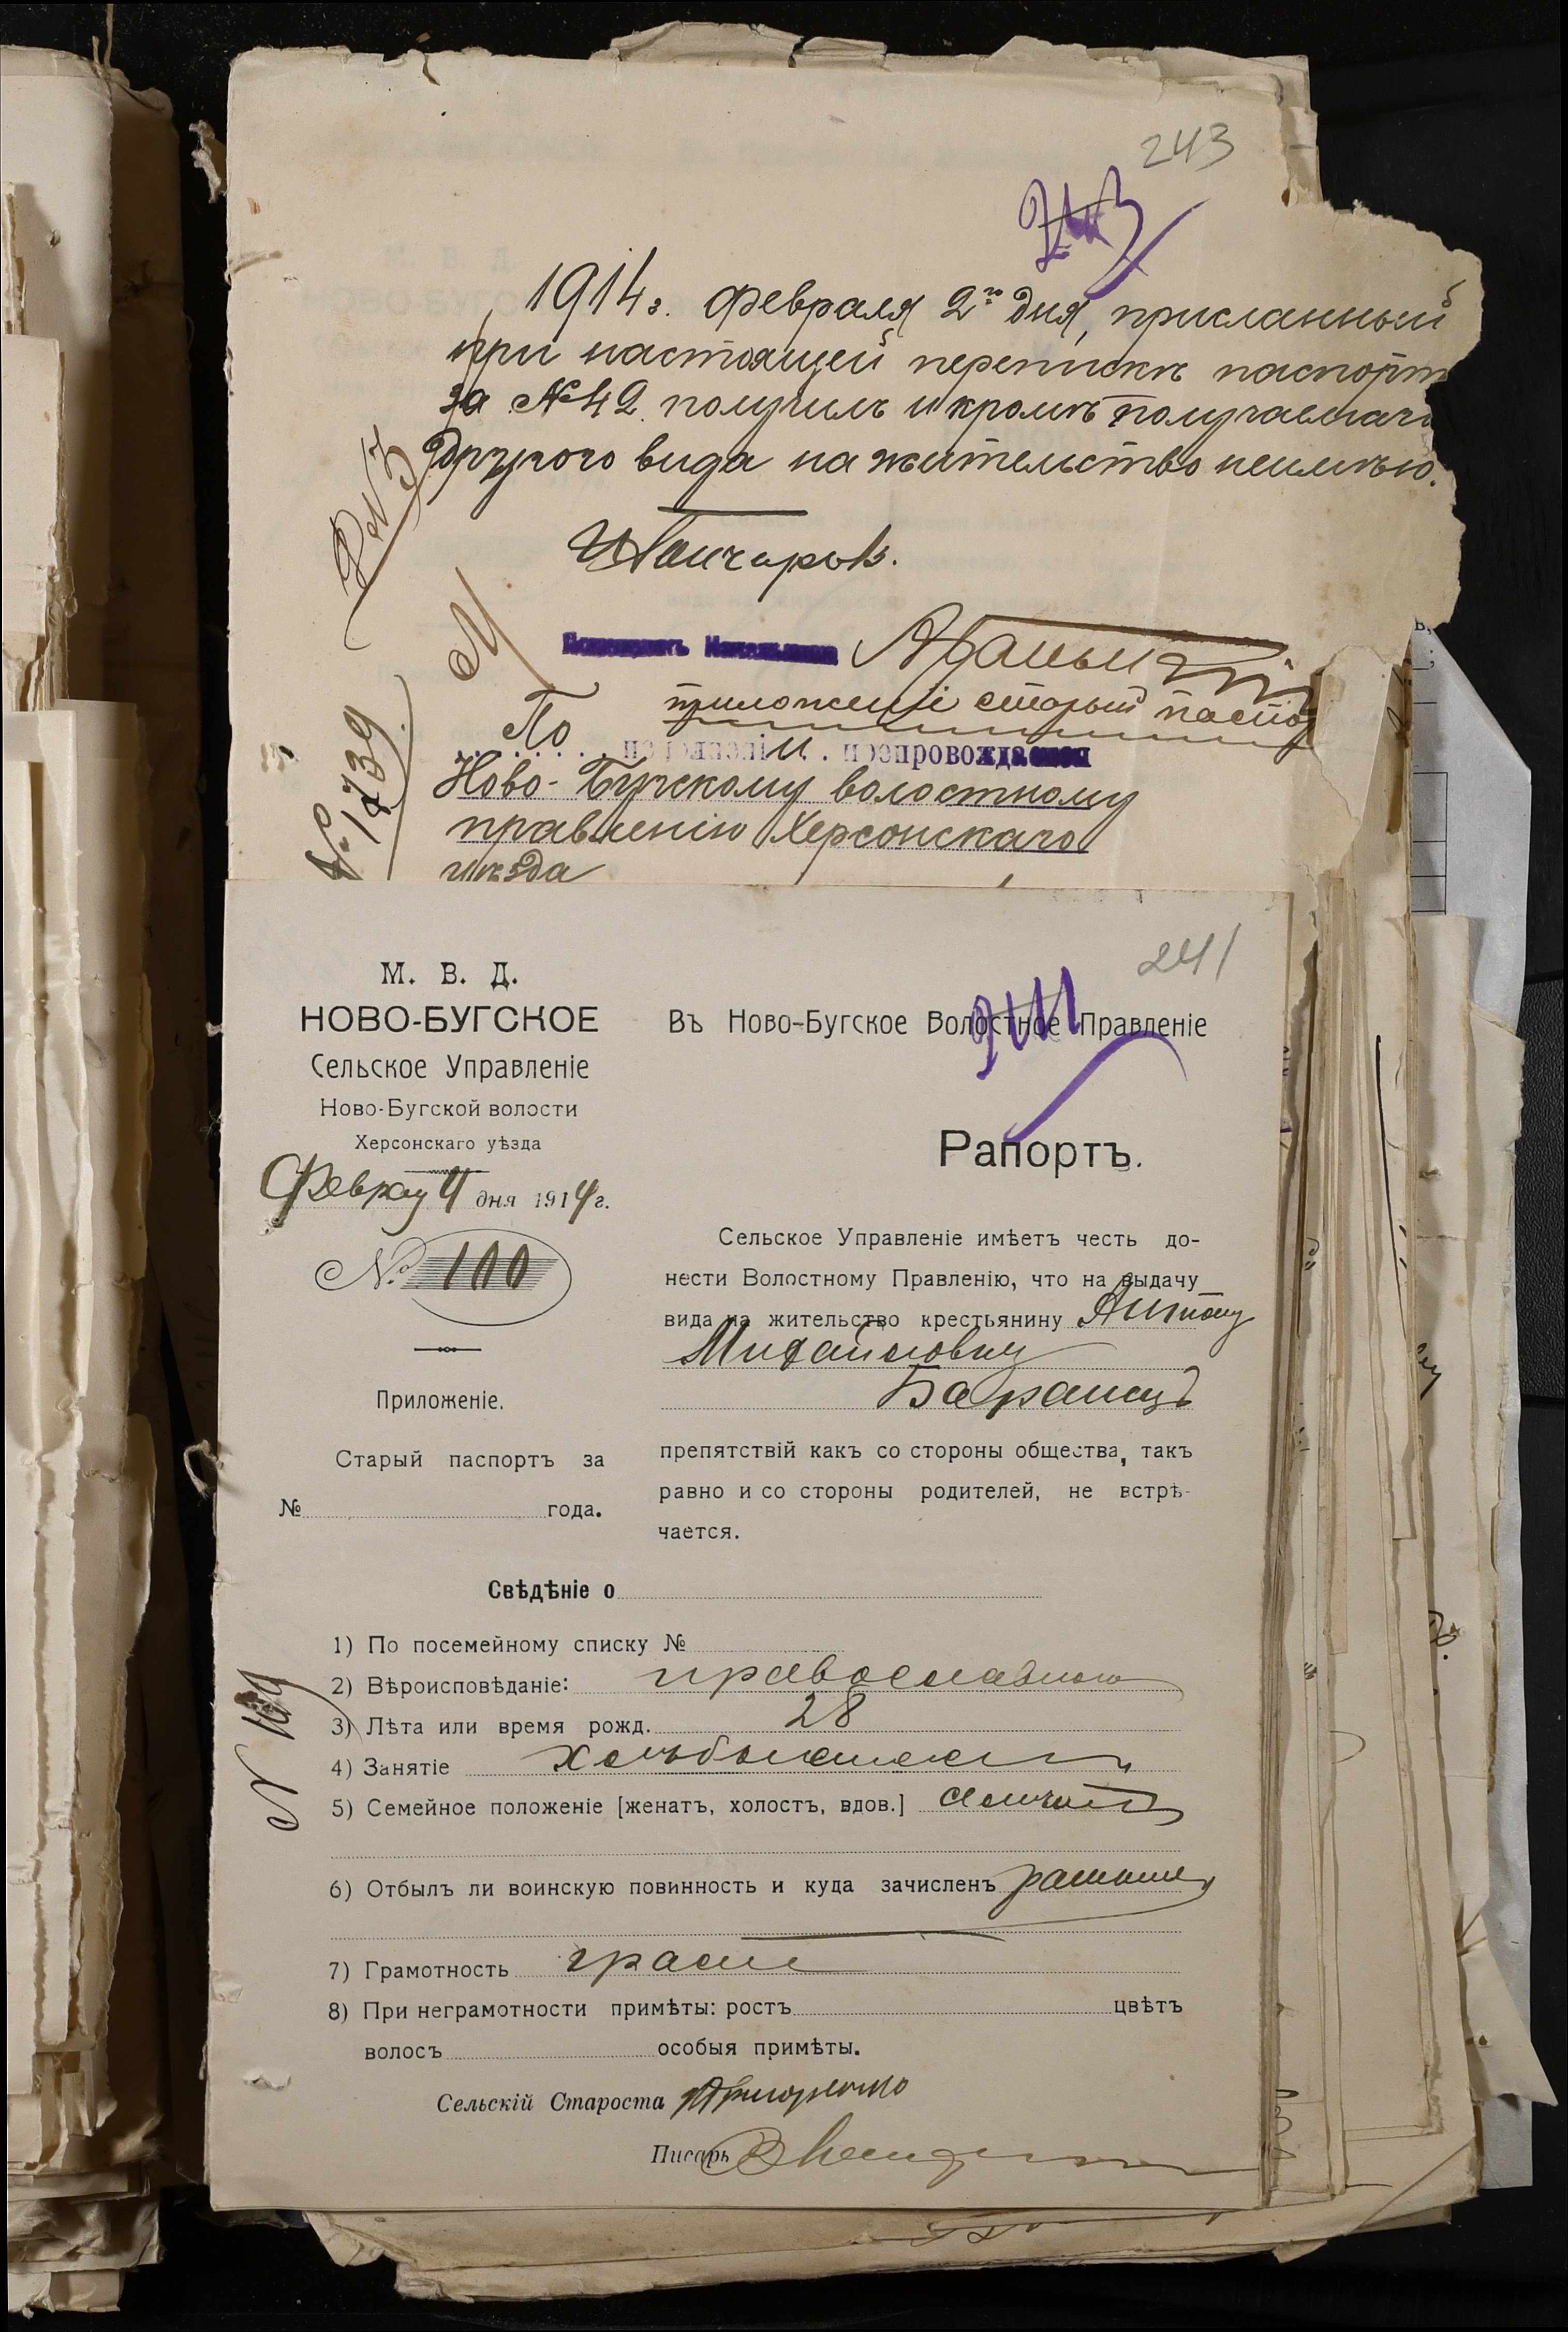 243
243
1914г. февраля 2го дня, присланный
при настоящей перепискѣ паспортъ
за №42 получилъ и кромѣ получаемаго
другого вида на жительство неимѣю.
2/II
М
приложеніе старый паспор
По исполненіи препровождается
Ново-Бугскому волостному
правленію Херсонскаго
уѣзда
№ 1739
241
241
М. В. Д.
НОВО-БУГСКОЕ
Сельское Управленіе
Ново-Бугской волости
Херсонскаго уѣзда
Феврал 4 дня 1914г.
№ 100
Приложеніе.
Старый паспортъ за
№ года.
Въ Ново-Бугское Волостное Правленіе
Рапортъ.
Сельское Управленіе имѣетъ честь до-
нести Волостному Правленію, что на выдачу
вида на жительство крестьянину Антону
Михайловичу
Баранцу
препятствій какъ со стороны общества, такъ
равно и со стороны родителей, не встрѣ-
чается.
Свѣдѣніе о
1) По посемейному списку №
2) Вѣроисповѣданіе: православного
3) Лѣта или время рожд. 28
4) Занятіе хлѣбопашест
5) Семейное положеніе [женатъ, холостъ, вдов.]
6) Отбылъ ли воинскую повинность и куда зачисленъ
7) Грамотность грам
8) При неграмотности примѣты: ростъ цвѣтъ
волосъ особыя примѣты.
Сельскій Староста
Писарь